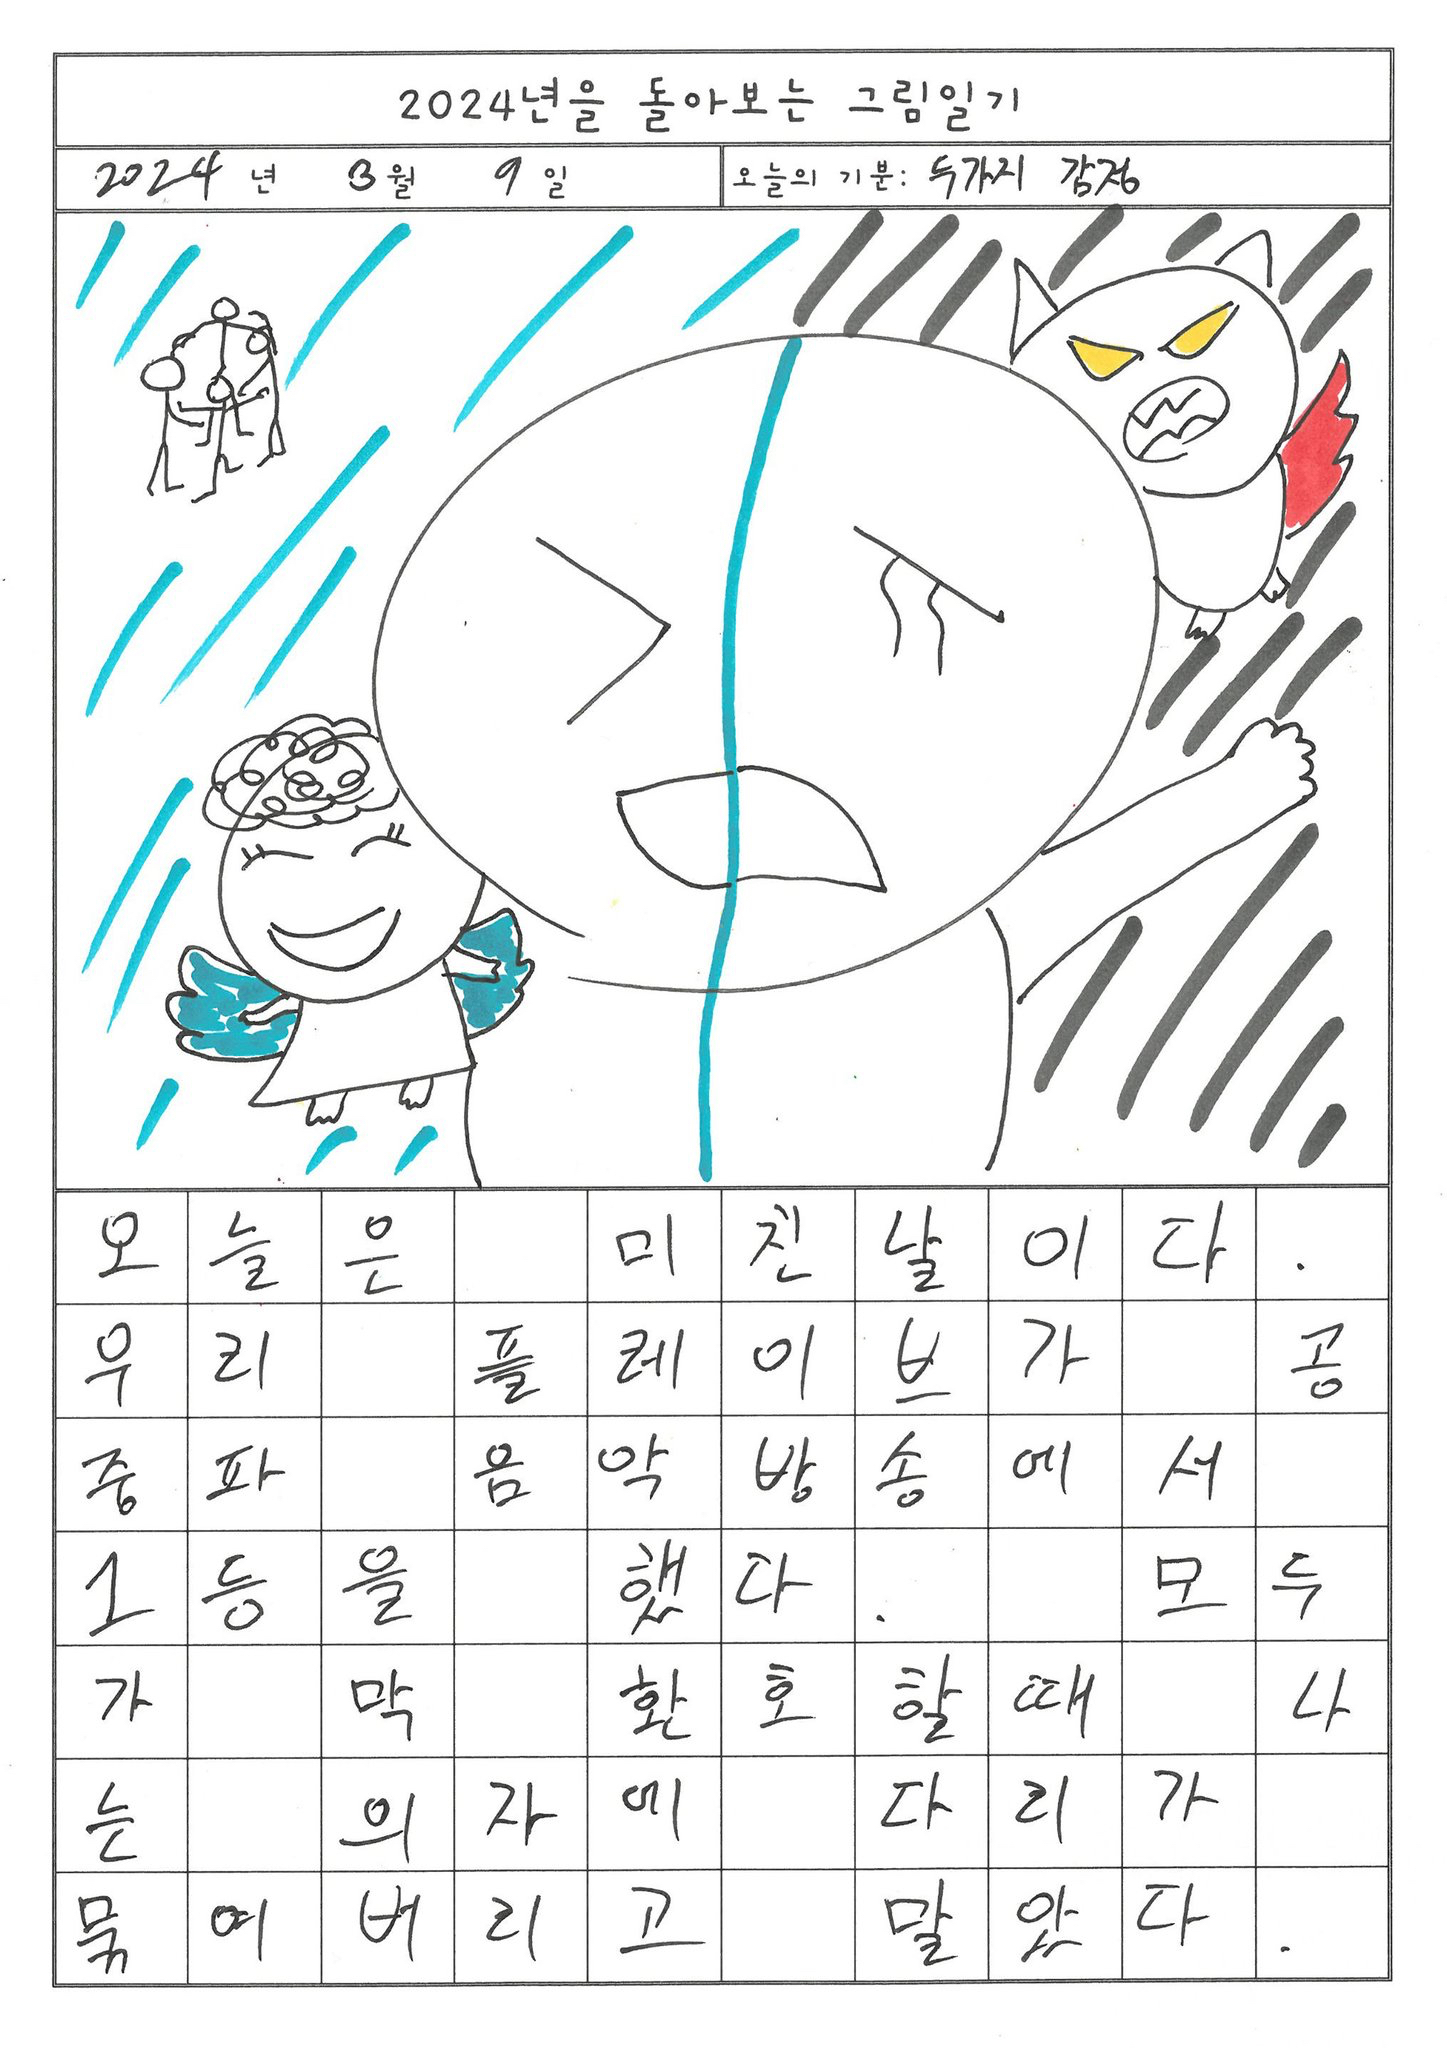 2024년을 돌아보는 그림일기
2024년 3월 9일 오늘의 기분: 두가지 감정
오늘은 미친날이다.
우리 플레이브가 공
중파 음악방송에서
1등을 했다. 모두
가 막 환호할때 나
는 의자에 다리가
묶여버리고 말았다.